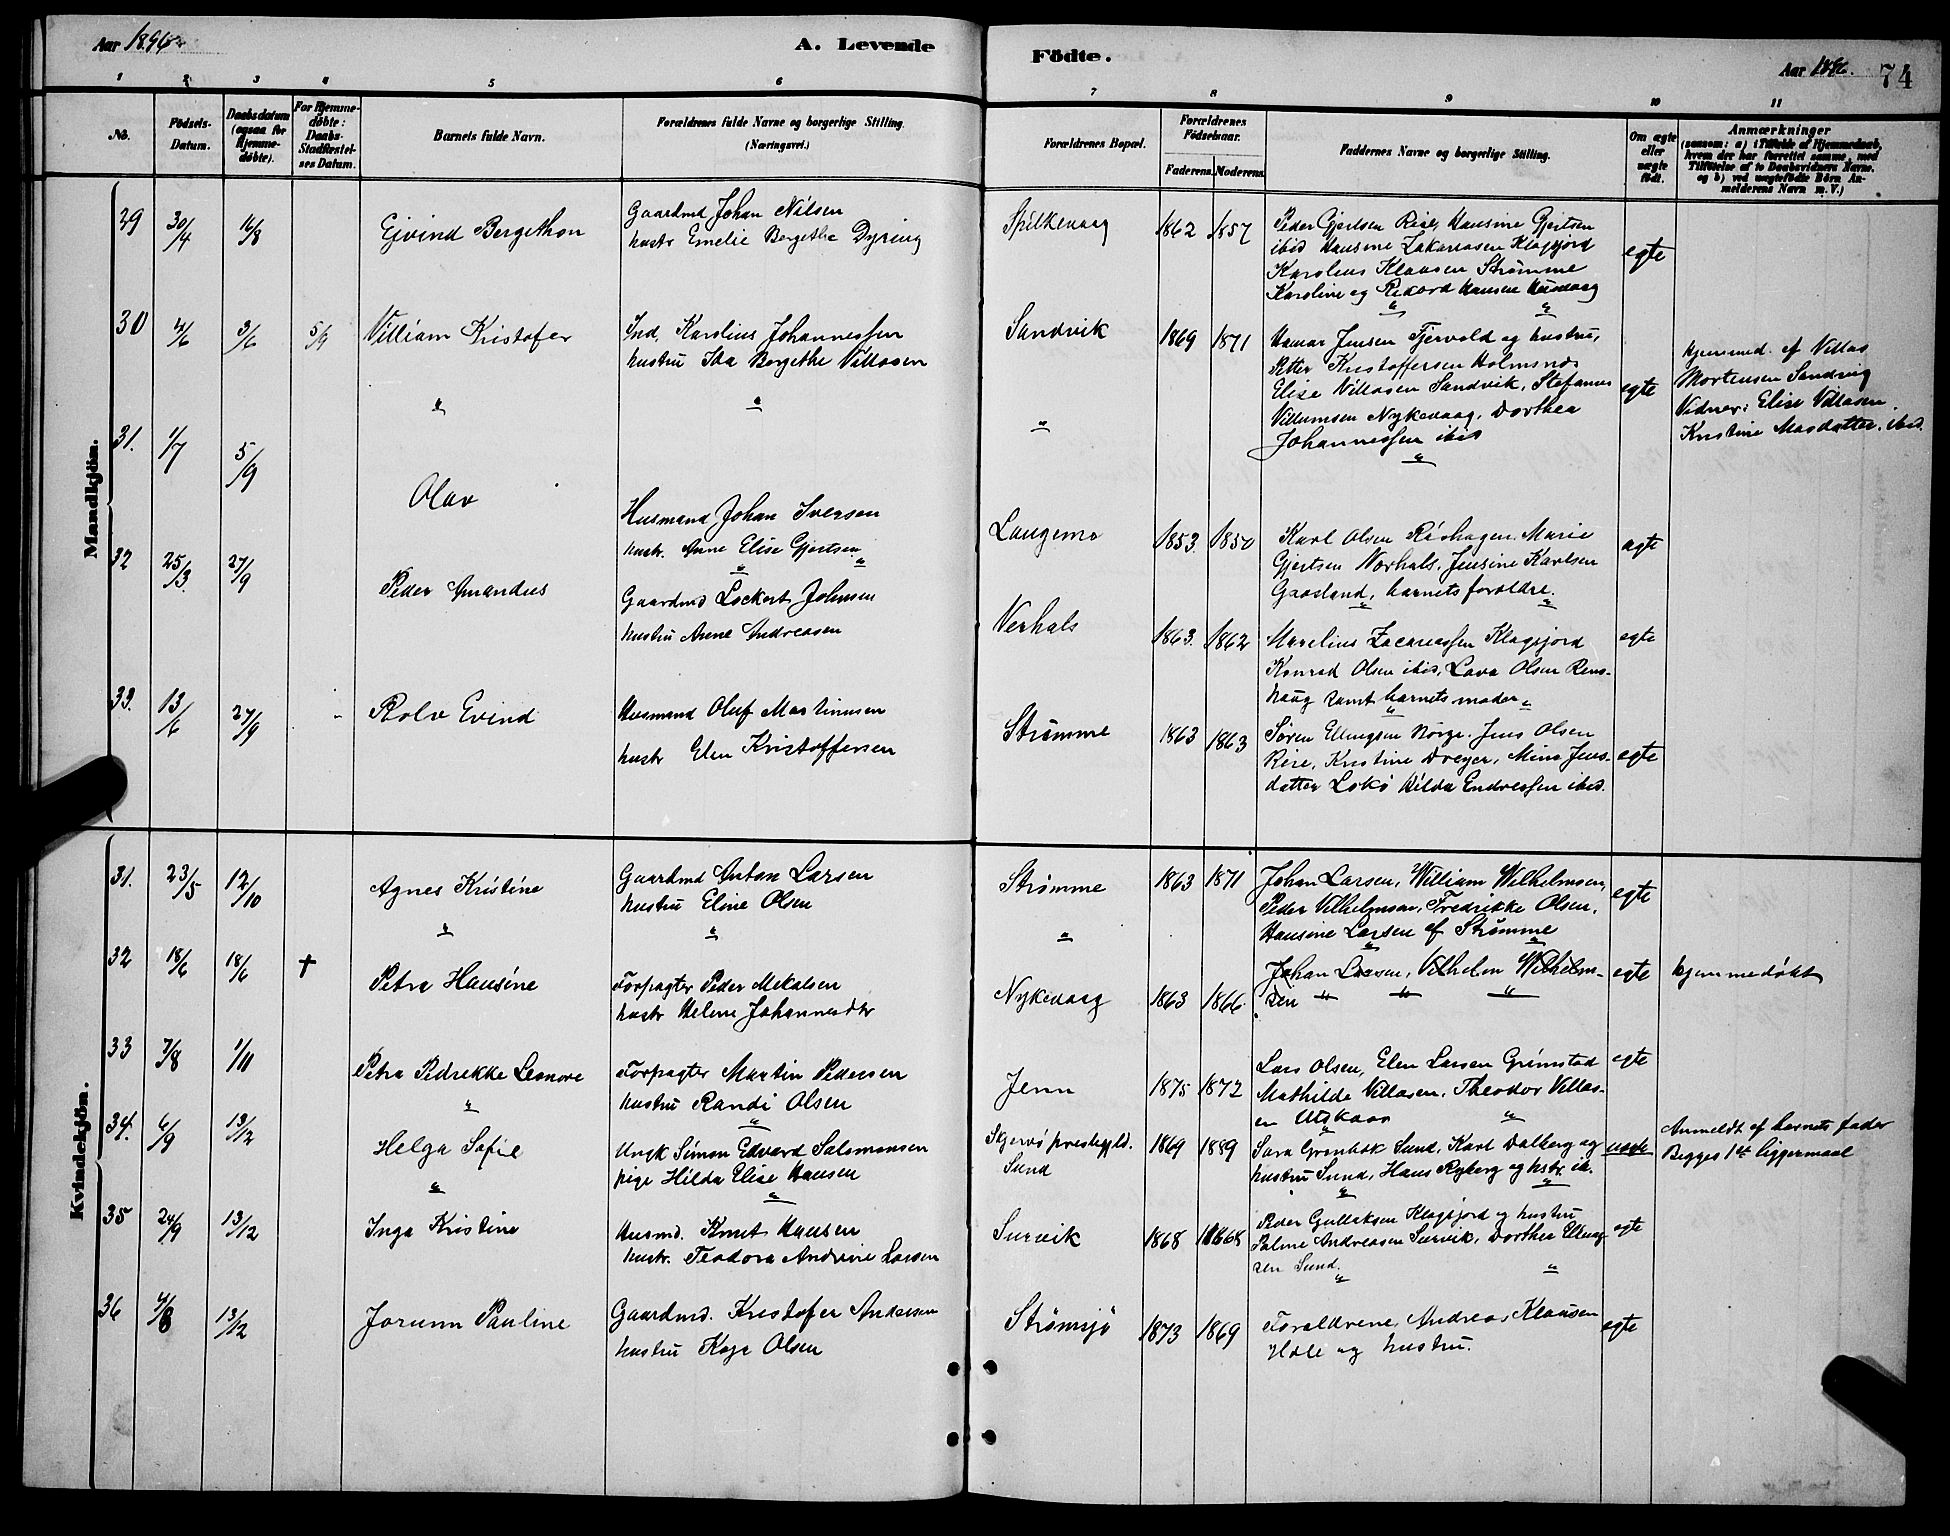 Aar 1896
A. Levende
Födte.
Aar 1896.
74
1 2 3 4 5 6 7 8 9 10 11
No.
Födsels-
Datum.
Daabsdatum
(ogsaa for
Hjemme-
døbte).
For Hjemme-
døbte:
Daabs-
Stadfæstel-
ses Datum.
Barnets fulde Navn.
Forældrenes fulde Navne og borgerlige Stilling.
(Næringsvei.)
Forældrenes Bopæl.
Forældrenes
Födselsaar.
Faderens. Moderens.
Faddernes Navne og borgerlige Stilling.
Om ægte
eller
uægte
født.
Anmærkninger
(saasom: a) i Tilfælde af Hjemmedaab,
hvem der har forrettet samme, med
Tilföielse af to Daabsvidners Navne.
og b) ved uægtefødte Börn An-
melderens Navn m. V.)
Mandkjön.
29 30/4 16/8 Ejvind Bergethon
Gaardmd Johan Nilsen
hustr Emelie Bergethe Dyring
Spilkevaag 1862 1857
Peder Gjertsen Rise, Hansine Gjertsen
ibid Hansine Zakariasen Klagfjord
Karolius Klausen Strømme
Karoline og Rikard Hansen
egte
30 4/6 3/6 5/9 Villiam Kristofer
Ind. Karolius Johannessen
hustru Ida Bergethe Villasen
Sandvik 1869 1871
Hamar Jensen Tjervold og hustru,
Petter Kristoffersen Holmsnes
Elise Villasen Sandvik, Stefanus
Villumsen Nykevaag, Dorthea
Johannessen ibid
egte
Hjemmed. af Villas
Mortensen Sandvig
Vidner: Elise Villasen
Kristine Masdatter. ibid.
31. 1/7 5/9 Olav
Husmand Johan Iversen
hustr. Anne Elise Gjertsen
Langemo 1853. 1850
Karl Olsen Røshagen, Marie
Gjertsen Norhals, Jensine Karlsen
Gaasland, barnets forældre.
egte
32 25/3. 27/9 Peder Amandus
Gaardmd Lockert Johnsen
hustru Anne Andreasen
Verhals 1863. 1862
Marelius Zacariassen Klagsjord
Konrad Olsen ibid, Lava Olsen Rens-
haug samt barnets moder
egte
33. 13/6 27/9 Rolv Evind
Husmand Oluf Martinusen
hustr Elen Kristoffersen
Strømme 1863 1863
Søren Ellingsen Norge. Jens Olsen
Rise, Kristine Dreyer, Mina Jens-
datter Lokø Hilda Endressen ibid.
egte
Kvindekjön.
31. 23/5 12/10 Agnes Kristine
Gaardmd Anton Larsen
hustru Eline Olsen
Strømme 1863 1871
Johan Larsen, William Wilhelmsen,
Peder Vilhelmsen, Fredrikke Olsen,
Hansine Larsen af Strømme
egte
32 18/6 18/6 † Petra Hansine
Forpagter Peder Mekalsen
hustr Helene Johannesdtr
Nykevaag 1863 1866
Johan Larsen, Vilhelm Wilhelm-
sen
egte
hjemmedøbt
33 7/8 1/11 Petra Pedrekke Leonore
Forpagter Martin Pedersen
hustru Randi Olsen
Jenn 1875 1872
Lars Olsen, Elen Larsen Grimstad
Mathilde Villasen, Theodor Villas-
en Utskaar
egte
34. 6/9 13/12 Helga Sofie
Ungk Simon Edvard Salomonsen
pige Hilda Elise Hansen
Skjervø prestegjeld.
Sund
1869 1889
Sara Grønbek Sund, Karl Dalberg og
hustru Sund, Hans Ryberg og hstr ib.
uegte
Anmeldt af barnets fader
Begges 1st liggermaal
35 24/9 13/12 Inga Kristine
Husmd. Knut Hansen
hustr. Teodora Andrine Larsen
Survik 1868 1868
Peder Gullaksen Klagsjord og hustru
Palme Andreasen Survik, Dorthea Elling-
sen Sund.
egte
36 4/8 13/12 Jorunn Pauline
Gaardmd. Kristofer Andersen
hustru Kaja Olsen
Strømsjø 1873 1869
Forældrene, Andreas Klausen
Hole og hustru.
egte